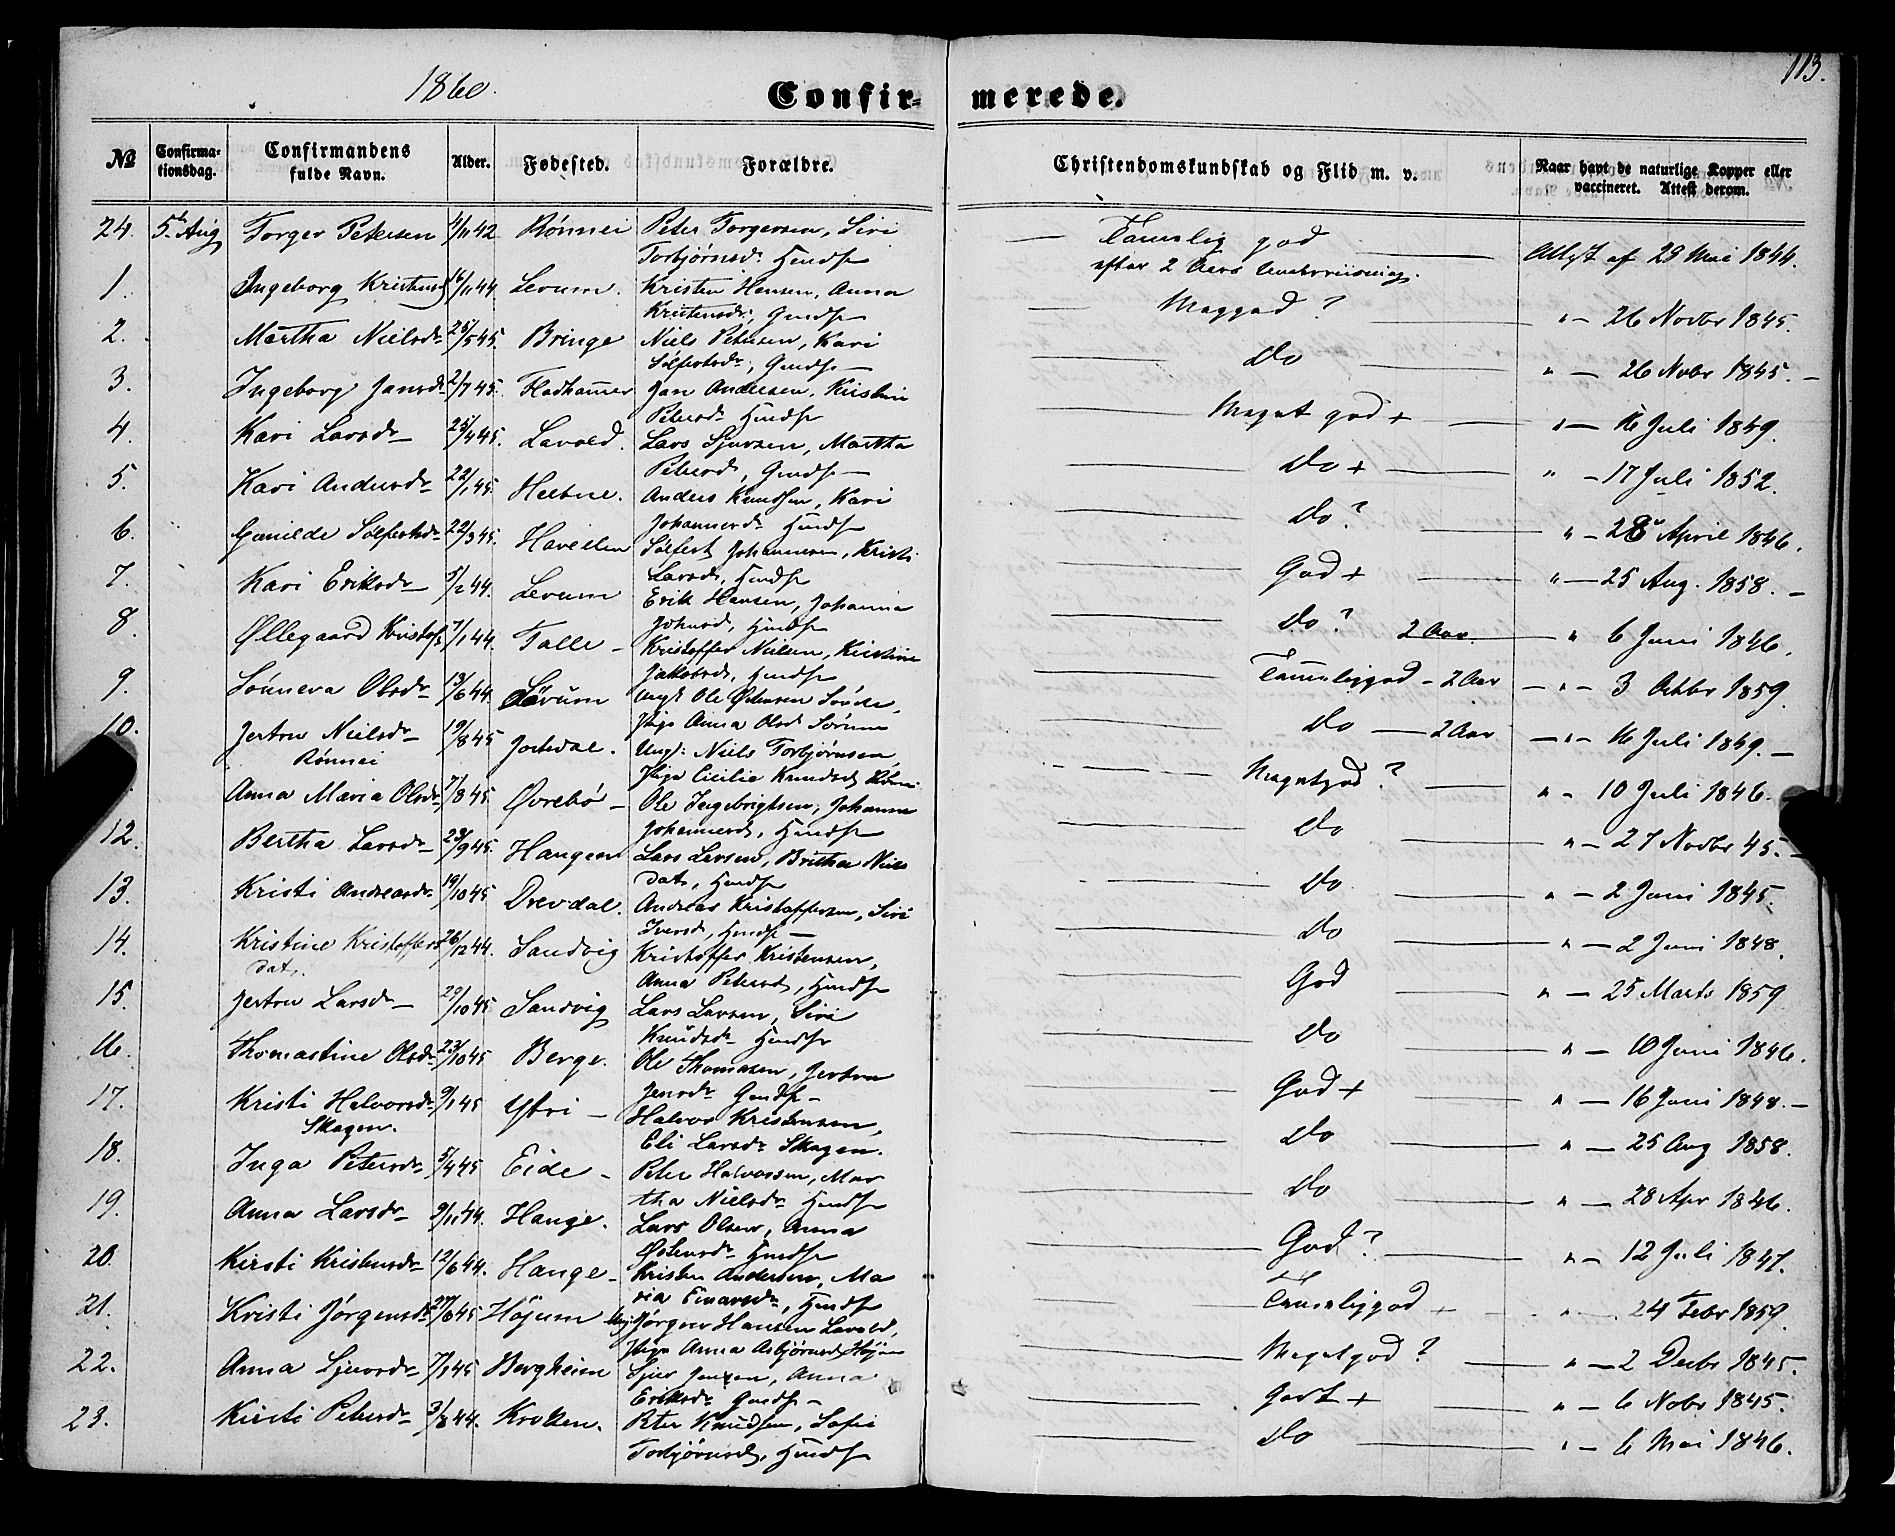 1860.
Confir-
merede.
113.
No
Confirma-
tionsdag.
Confirmandens
fulde Navn.
Alder.
Fødested.
Forældre.
Christendomskundskab og Flid m. v.
Naar havt de naturlige Kopper eller
vaccineret. Attest derom.
24. 5t Aug Torger Petersen 4/11 42 Rønnei Peter Torgersen, Siri
Torbjørnsd. Hmdsf
Tämelig god
efter 2 Aars Underviisning.
Attest af 29 Mai 1844.
1. Ingeborg Kristensd 16/11 44. Levum. Kristen Hansen, Anna
Kristensdr, Gmdsf
Meggod ? " — 26 Novbr 1845.
2. Martha Nielsdr 25/5 45. Bringe Niels Petersen, Kari
Sølfestsdr, Gmdsf —
Do " — 26 Nobr 1845. —
3. Ingeborg Jansdr 2/7 45. Fladhamer Jan Andersen, Kirstine
Petersdr Hmdsf
Meget god + " — 16 Juli 1849.
4. Kari Larsdr 25/4 45. Lavold. Lars Sjursen, Martha
Petersd, Gmdsf —
Do + " — 17 Juli 1852.
5. Kari Andersdr 22/1 45. Heltne. Anders Knudsen, Kari
Johannesdr Hmdsf
Do ? " — 28 April 1846.
6. Gunilde Sølfestsdr 22/3 45. Haveslen Sølfest Johannesen, Kristi
Larsdr, Hmdsf
God + " — 25 Aug. 1858. —
7. Kari Eriksdr 5/2 44. Levum Erik Hansen, Johanna
Johnsd, Hmdsf
Do ? 2 Aar. — " 6 Juni 1846.
8. Øllegaard Kristofs 7/1 44. Talle — Kristoffer Nielsen, Kirstine
Jakobsd, Hmdsf
Tämeliggod — 2 Aar — " — 3 Octbr 1859.
9. Sønneva Olsdr 13/6 44. Sörum Ungk Ole Østensen
Pige Anna Olsd Sørum
Do — 2 Aar — " — 16 Juli 1849. —
10. Jertru Nielsdr 19/8 45 Jostedal. Ungk: Niels Torbjørnsen,
Rønnei
Pige Cicilie Knudsd Rönei
Megetgod ? " — 10 Juli 1846.
Anna Maria Olsdr 7/8 45 Øvrebö — Ole Ingebrigtsen, Johanna
Johannesd, Hmdsf
Do " — 27 Novbr 45. —
12. Bertha Larsdr 23/9 45. Haugen Lars Larsen, Britha Niels
dat, Hmdsf
Do " — 2 Juni 1845.
13. Kristi Andreasdr 19/10 45 Drevdal. Andreas Kristoffersen, Siri
Iversd, Hmdsf —
Do " — 2 Juni 1848.
14. Kristine Kristoffers 26/12 44. Sandvig Kristoffer Kristensen,
dat.
Anna Petersd, Hmdsf
God " — 25 Marts 1859
15. Jertru Larsdr 29/10 45 Sandvig Lars Larsen, Siri
Knudsdr Hmdsf
Do " — 10 Juni 1846.
16. Thomastine Olsdr 23/10 45 Berge. Ole Thomasen, Jertru
Jensdr Gmdsf —
God + " — 16 Juni 1848. —
17. Kristi Halvorsdr 9/1 45 Ytri — Halvor Kristensen,
Skagen.
Eli Larsdr Skagen.
Do " — 25 Aug 1858.
18. Inga Petersdr 5/4 45 Eide — Peter Halvorsen, Mar
tha Nielsdr Hmdsf
Do " — 28 Apr 1846.
19. Anna Larsdr 9/11 44. Hauge. Lars Olsen, Anna
Østensdr Hmdsf
God ? " — 12 Juli 1847.
20. Kirsti Kristensdr 12/6 44. Hauge — Kristen Andersen, Ma
ria Einarsdr, Hmdsf
Tämeliggod + " . 24 Febr 1859.
21. Kristi Jørgensdr 27/6 45 Höjum Ung Jørgen Hansen Lavold,
Pige Anna Asbjørnsd Höjum
Megetgod ? " — 2 Decbr 1845.
22. Anna Sjursdr 7/1 45 Bergheim Sjur Jensen, Anna
Eriksdr Gmdsf —
Godt + " — 6 Nobr 1845.
23. Kirsti Petersdr 3/8 44. Kroken. Peter Knudsen, Sofie
Torbjørnsd, Hmdsf
Do " — 6 Mai 1846.